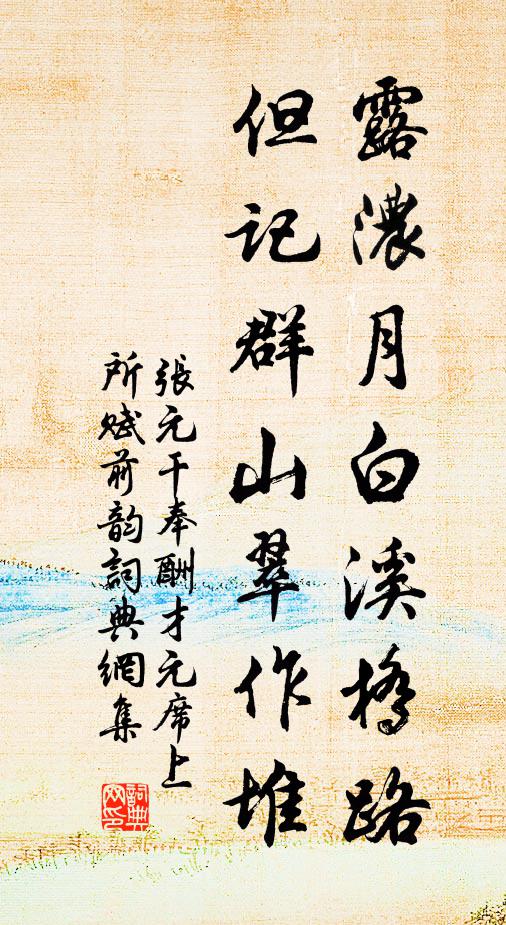 露濃月白溪橋路
但記群山翠作堆
張元干奉酬才元席上
所賦前韵詞典網集
詞典網印